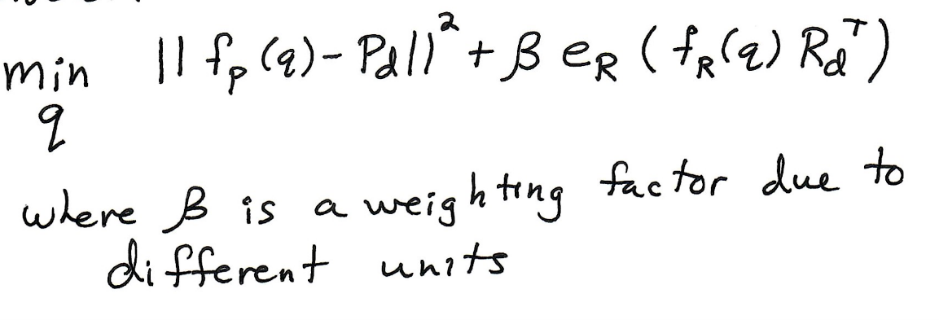 min q || f_p(q) - P_d ||² + β e_R ( f_R(q) R_d^T )
where β is a weighting factor due to
different units